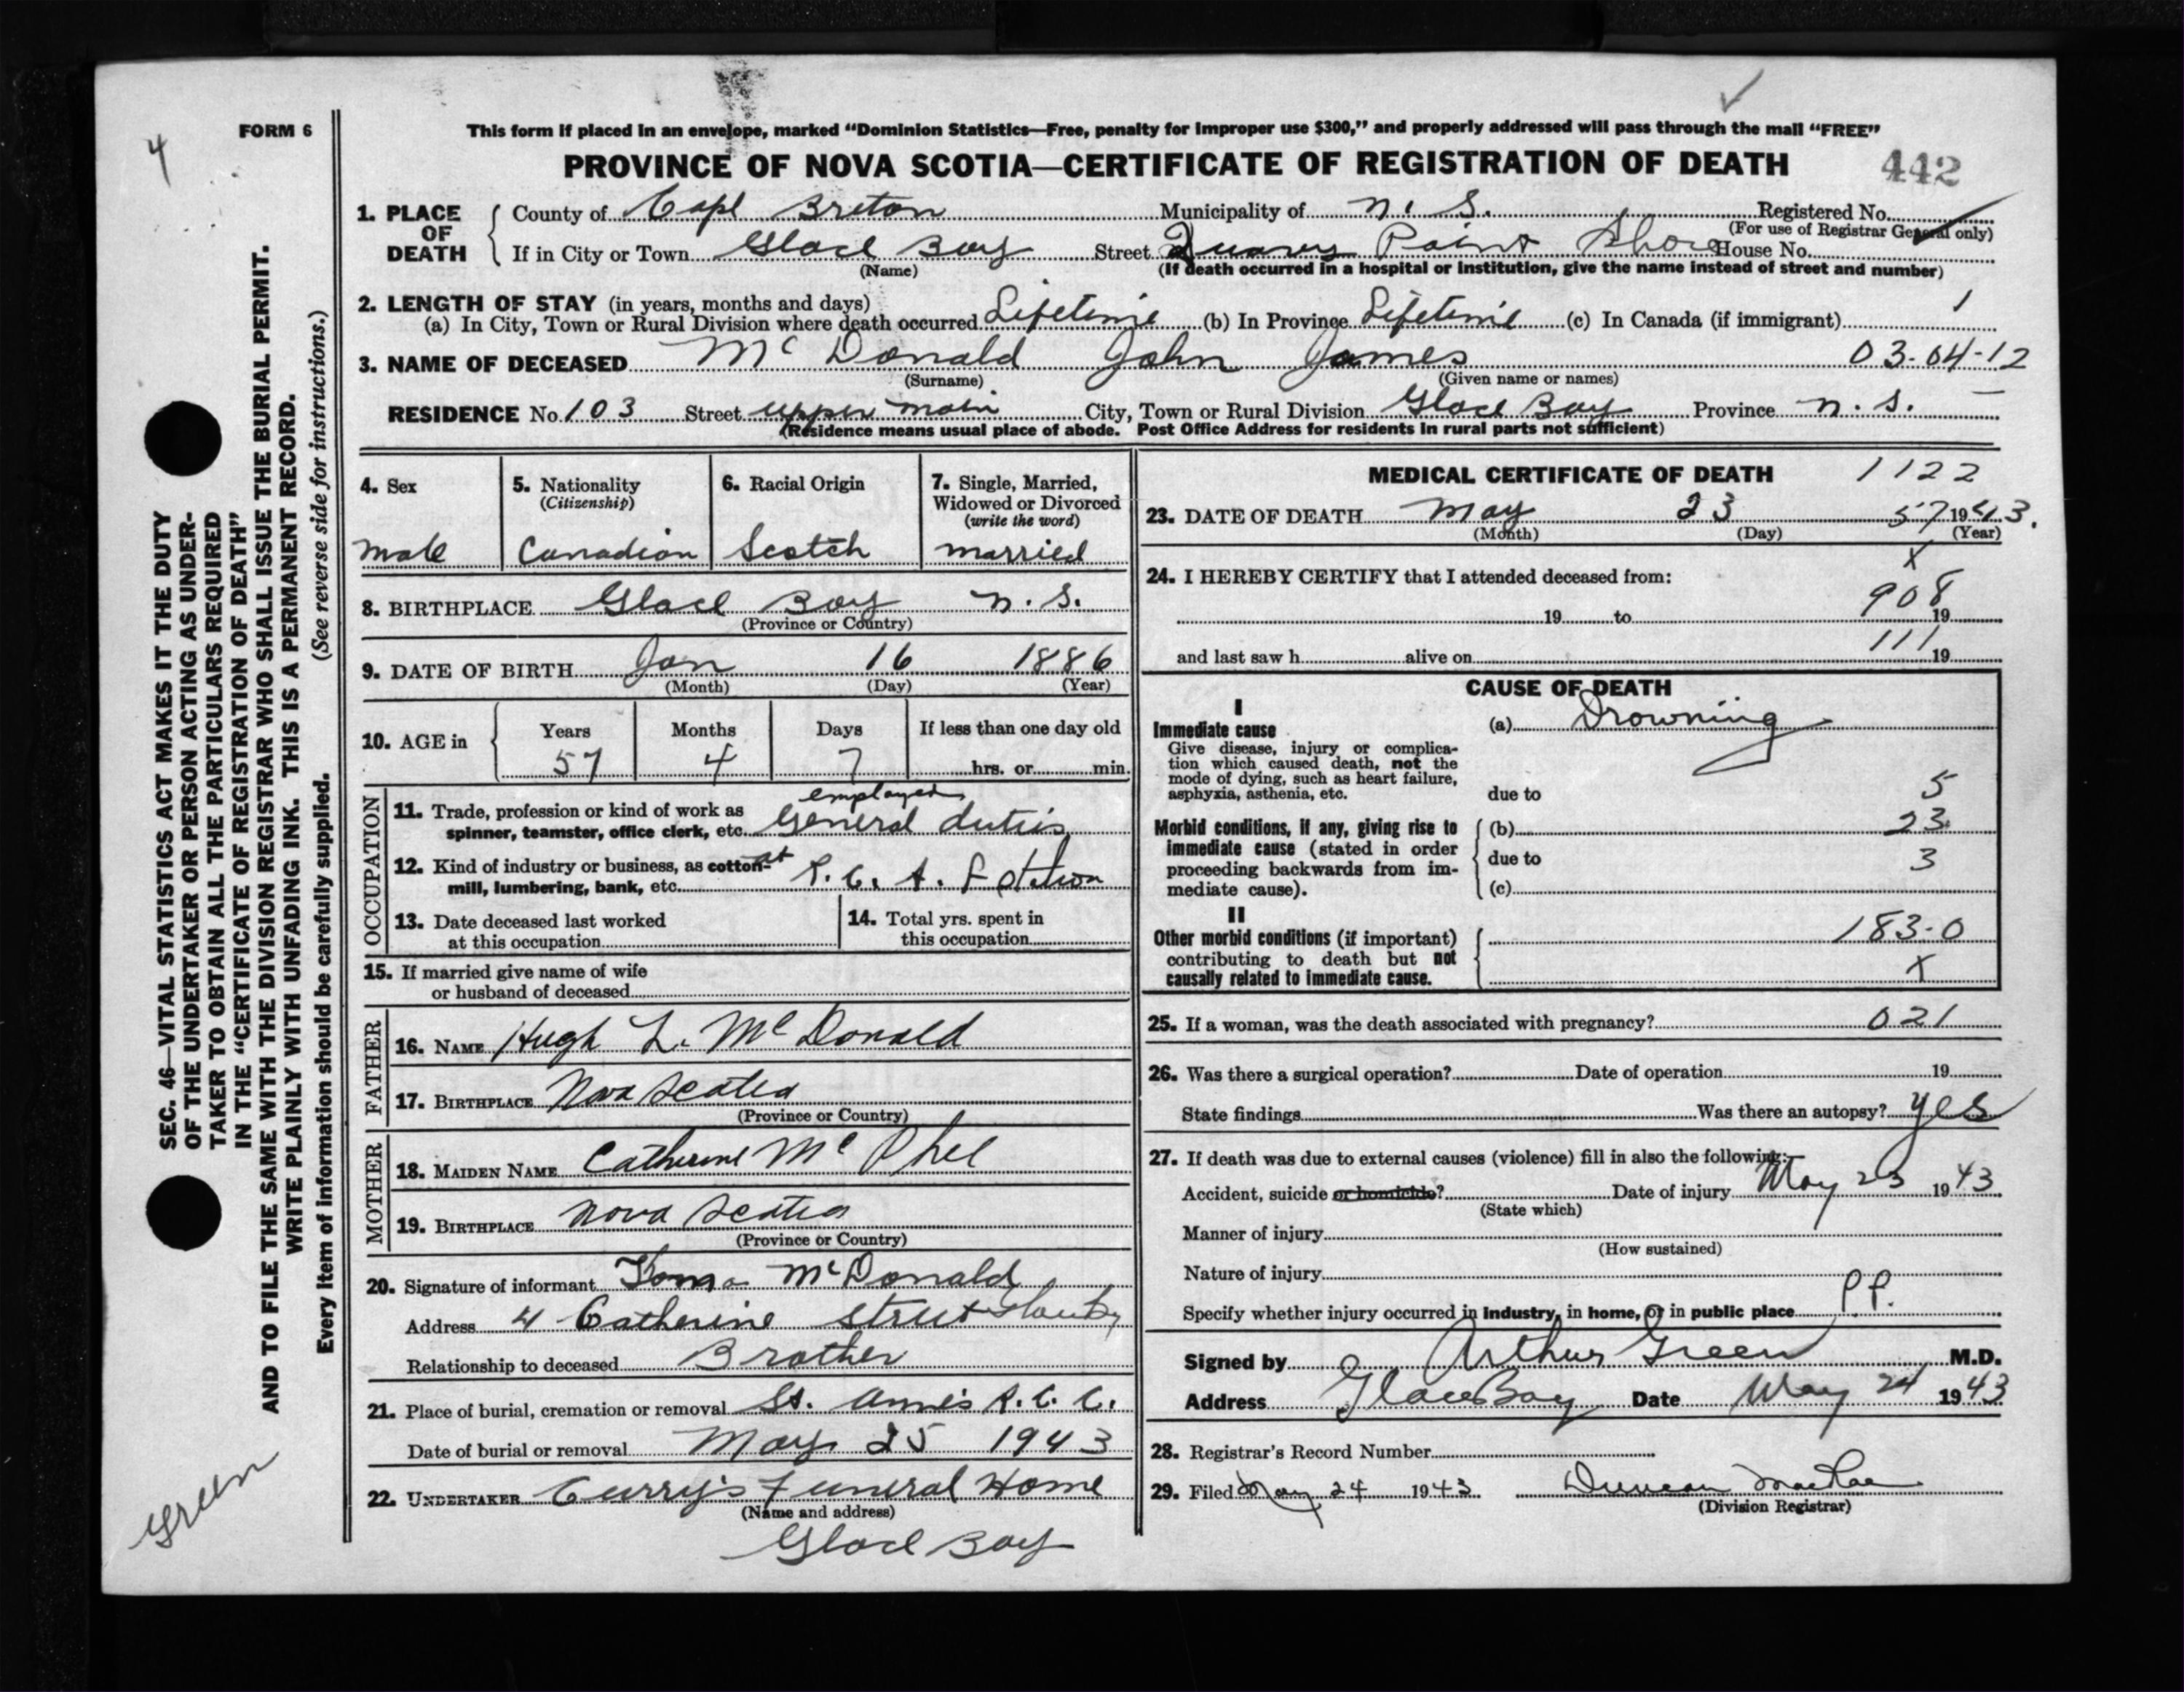 4
FORM 6
This form if placed in an envelope, marked “Dominion Statistics—Free, penalty for improper use $300,” and properly addressed will pass through the mail “FREE”
PROVINCE OF NOVA SCOTIA—CERTIFICATE OF REGISTRATION OF DEATH 442
1. PLACE OF DEATH
County of Cape Breton Municipality of N. S. Registered No.
(For use of Registrar General only)
If in City or Town Glace Bay Street Point Shore House No.
(Name) (If death occurred in a hospital or institution, give the name instead of street and number)
2. LENGTH OF STAY (in years, months and days) 1
(a) In City, Town or Rural Division where death occurred Lifetime (b) In Province Lifetime (c) In Canada (if immigrant)
3. NAME OF DECEASED McDonald John James 03-04-12
(Surname) (Given name or names)
RESIDENCE No. 103 Street upper main City, Town or Rural Division Glace Bay Province N. S.
(Residence means usual place of abode. Post Office Address for residents in rural parts not sufficient)
4. Sex
male
5. Nationality
(Citizenship)
Canadian
6. Racial Origin
Scotch
7. Single, Married,
Widowed or Divorced
(write the word)
married
8. BIRTHPLACE Glace Bay N. S.
(Province or Country)
9. DATE OF BIRTH Jan 16 1886
(Month) (Day) (Year)
10. AGE in
Years Months Days If less than one day old
57 4 7 hrs. or min.
OCCUPATION
employed
11. Trade, profession or kind of work as
spinner, teamster, office clerk, etc. General duties
12. Kind of industry or business, as cotton-
mill, lumbering, bank, etc. at R. C. A. F Station
13. Date deceased last worked
at this occupation
14. Total yrs. spent in
this occupation
15. If married give name of wife
or husband of deceased
FATHER
16. NAME Hugh L. McDonald
17. BIRTHPLACE Nova Scotia
(Province or Country)
MOTHER
18. MAIDEN NAME Catherine McPhee
19. BIRTHPLACE Nova Scotia
(Province or Country)
20. Signature of informant McDonald
Address 4 Catherine Street
Relationship to deceased Brother
21. Place of burial, cremation or removal St. Anne's R. C. C.
Date of burial or removal May 25 1943
22. UNDERTAKER Curry's Funeral Home
(Name and address)
Glace Bay
MEDICAL CERTIFICATE OF DEATH 1122
23. DATE OF DEATH May 23 57 1943.
(Month) (Day) (Year)
X
24. I HEREBY CERTIFY that I attended deceased from:
908
19 to 19
111
and last saw h alive on 19
CAUSE OF DEATH
I
Immediate cause
Give disease, injury or complica-
tion which caused death, not the
mode of dying, such as heart failure,
asphyxia, asthenia, etc.
(a) Drowning
due to 5
Morbid conditions, if any, giving rise to
immediate cause (stated in order
proceeding backwards from im-
mediate cause).
(b) 23
due to 3
(c)
II
Other morbid conditions (if important)
contributing to death but not
causally related to immediate cause.
183-0
X
25. If a woman, was the death associated with pregnancy? 021
26. Was there a surgical operation? Date of operation 19
State findings Was there an autopsy? yes
27. If death was due to external causes (violence) fill in also the following:—
Accident, suicide or homicide? Date of injury May 23 1943
(State which)
Manner of injury
(How sustained)
Nature of injury
Specify whether injury occurred in industry, in home, or in public place P.P.
Signed by Arthur Green M.D.
Address Glace Bay Date May 24 1943
28. Registrar's Record Number
29. Filed May 24 1943 Duncan MacRae
(Division Registrar)
SEC. 46—VITAL STATISTICS ACT MAKES IT THE DUTY
OF THE UNDERTAKER OR PERSON ACTING AS UNDER-
TAKER TO OBTAIN ALL THE PARTICULARS REQUIRED
IN THE “CERTIFICATE OF REGISTRATION OF DEATH”
AND TO FILE THE SAME WITH THE DIVISION REGISTRAR WHO SHALL ISSUE THE BURIAL PERMIT.
WRITE PLAINLY WITH UNFADING INK. THIS IS A PERMANENT RECORD.
Every item of information should be carefully supplied. (See reverse side for instructions.)
Green